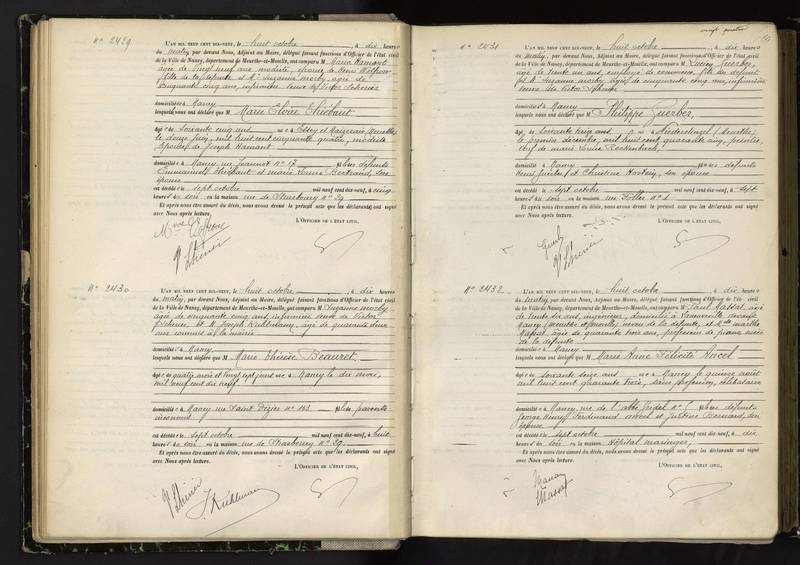 N° 2429
L'AN MIL NEUF CENT DIX-NEUF, le huit octobre, à dix heures
du matin, par devant Nous, Adjoint au Maire, délégué faisant fonctions d'Officier de l'état civil
de la Ville de Nancy, département de Meurthe-et-Moselle, ont comparu M Maria Hamant
agée de vingt neuf ans, modiste, épouse de
fille de la défunte et Me Suzanne Morby, agée de
cinquante cinq ans, infirmière veuve de Victor Scherrer
domicilié s à Nancy
lesquels nous ont déclaré que M Marie Elvire Thiébaut
âgé e de soixante cinq ans née à Essey et Maizerais (Meurthe)
le douze juin, mil huit cent cinquante quatre, modiste
épouse de Joseph Hamant
domicilié e à Nancy, rue Jeannot n° 17, fille des défunts
Emmanuel Thiébaut et Marie Anne Bertrand, son
épouse
est décédé e le sept octobre mil neuf cent dix-neuf, à cinq
heures du soir en la maison rue de Strasbourg n° 29
Et après nous être assuré du décès, nous avons dressé le présent acte que les déclarants ont signé
avec Nous après lecture.
L'OFFICIER DE L'ÉTAT CIVIL,
N° 2430
L'AN MIL NEUF CENT DIX-NEUF, le huit octobre, à dix heures
du matin, par devant Nous, Adjoint au Maire, délégué faisant fonctions d'Officier de l'état civil
de la Ville de Nancy, département de Meurthe-et-Moselle, ont comparu M Suzanne Morby
agée de cinquante cinq ans, infirmière veuve de Victor
Scherrer, et M Joseph Kuhlmann, agé de quarante deux
ans commis à la mairie
domicilié s à Nancy
lesquels nous ont déclaré que M Marie Thérèse Beauret
âgé e de quatre mois et vingt sept jours née à Nancy le dix mai,
mil neuf cent dix neuf
domicilié e à Nancy rue Saint Dizier n° 163 fille de parents
inconnus
est décédé e le sept octobre mil neuf cent dix-neuf, à huit
heures du soir en la maison rue de Strasbourg n° 29
Et après nous être assuré du décès, nous avons dressé le présent acte que les déclarants ont signé
avec Nous après lecture.
L'OFFICIER DE L'ÉTAT CIVIL,
J. Kuhlmann
vingt quatre
N° 2431
L'AN MIL NEUF CENT DIX-NEUF, le huit octobre, à dix heures
du matin, par devant Nous, Adjoint au Maire, délégué faisant fonctions d'Officier de l'état civil
de la Ville de Nancy, département de Meurthe-et-Moselle, ont comparu M Lucien Guerber,
agé de trente un ans, employé de commerce, fils du défunt
et Me Suzanne Morby, agée de cinquante cinq ans, infirmière
veuve de Victor Scherrer
domicilié s à Nancy
lesquels nous ont déclaré que M Philippe Guerber,
âgé de soixante treize ans né à Niederstinzel (Meurthe)
le premier décembre, mil huit cent quarante cinq,
veuf de Marie Louise
domicilié à Nancy fils des défunts
Henri Guerber et Christine Hostein, son épouse
est décédé le sept octobre mil neuf cent dix-neuf, à sept
heures du soir en la maison rue Foller n° 1
Et après nous être assuré du décès, nous avons dressé le présent acte que les déclarants ont signé
avec Nous après lecture.
L'OFFICIER DE L'ÉTAT CIVIL,
N° 2432
L'AN MIL NEUF CENT DIX-NEUF, le huit octobre, à dix heures
du matin, par devant Nous, Adjoint au Maire, délégué faisant fonctions d'Officier de l'état civil
de la Ville de Nancy, département de Meurthe-et-Moselle, ont comparu M Paul Massat, agé
de trente six ans, ingénieur, domicilié à Laneuveville devant
Nancy (Meurthe et Moselle) neveu de la défunte, et Me Marthe
Massat, agée de quarante trois ans, professeur de piano, nièce
de la défunte
domicilié e à Nancy
lesquels nous ont déclaré que M Marie Anne Félicité Ancel
âgé e de soixante seize ans née à Nancy le quinze août
mil huit cent quarante trois, sans profession, célibataire
domicilié e à Nancy, rue de l'abbé Gridel n° fille des défunts
George Henry Ferdinand Ancel et Justine Bernard, son
épouse
est décédé e le sept octobre mil neuf cent dix-neuf, à dix
heures du soir en la maison Hôpital Maringer,
Et après nous être assuré du décès, nous avons dressé le présent acte que les déclarants ont signé
avec Nous après lecture.
L'OFFICIER DE L'ÉTAT CIVIL,
Massat